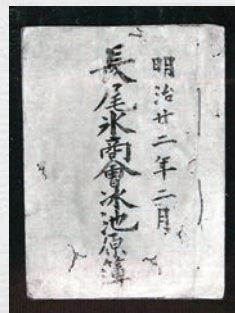 明治廿二年二月
長尾氷商會氷池原簿